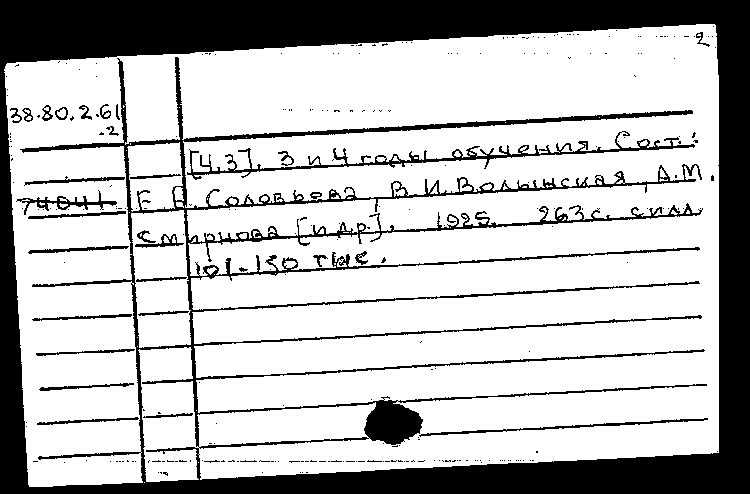 2
38.80.2.61
-2
[Ч.3]. 3 и 4 годы обучения. Сост.:
74041 Е.Е. Соловьева, В.И. Волынская, А.М.
Смирнова [и др.]. 1925. 263 с. с илл.
101-150 тыс.